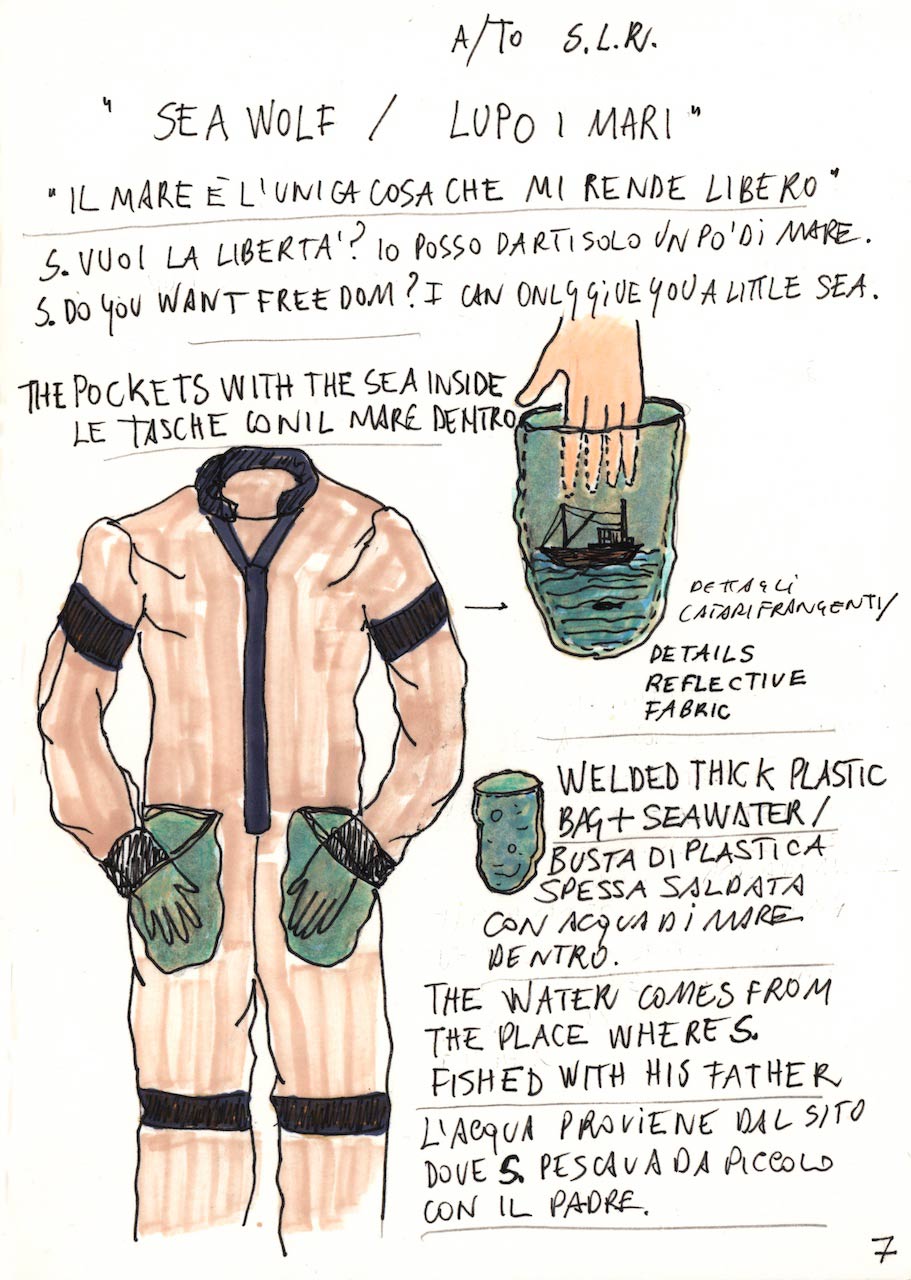 A/TO S.L.R.
" SEA WOLF / LUPO I MARI "
"IL MARE È L'UNICA COSA CHE MI RENDE LIBERO"
S. VUOI LA LIBERTA'? IO POSSO DARTI SOLO UN PO' DI MARE.
S. DO YOU WANT FREEDOM? I CAN ONLY GIVE YOU A LITTLE SEA.
THE POCKETS WITH THE SEA INSIDE
LE TASCHE CON IL MARE DENTRO
DETTAGLI
CATARIFRANGENTI/
DETAILS
REFLECTIVE
FABRIC
WELDED THICK PLASTIC
BAG + SEAWATER /
BUSTA DI PLASTICA
SPESSA SALDATA
CON ACQUA DI MARE
DENTRO.
THE WATER COMES FROM
THE PLACE WHERE S.
FISHED WITH HIS FATHER
L'ACQUA PROVIENE DAL SITO
DOVE S. PESCAVA DA PICCOLO
CON IL PADRE.
7